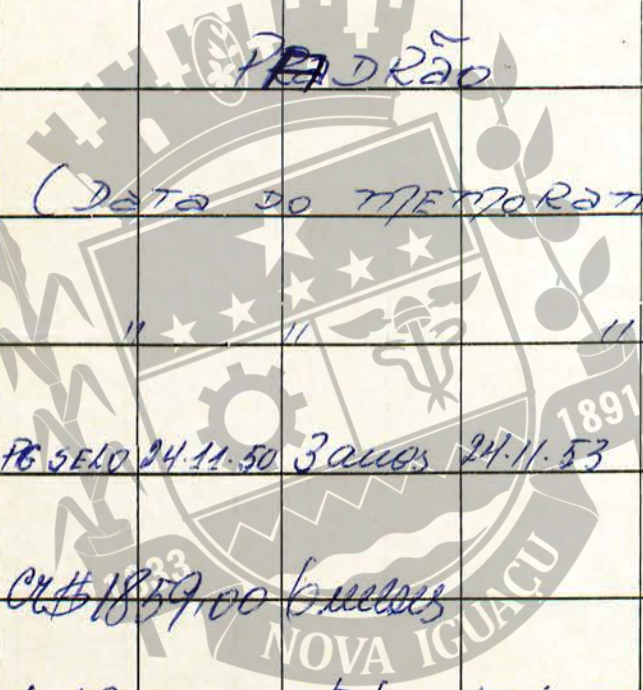 PADRão
(DaTa DO MEMORan
" " "
PG SELO 24.11.50 3 anos 24.11.53
1891
Cr$1859,00 6 meses
1833
NOVA IGUAÇU